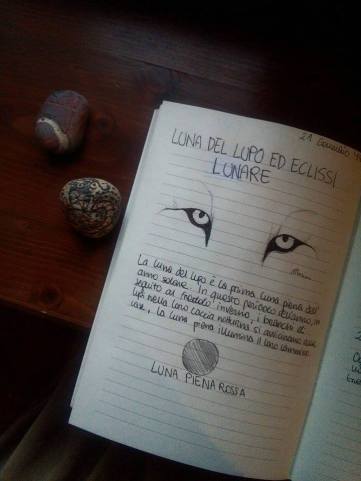 21 Gennaio
LUNA DEL LUPO ED ECLISSI
LUNARE
La luna del lupo è la prima luna piena dell'
anno solare. In questo periodo dell'anno, in
seguito al freddo inverno, i branchi di
lupi nella loro caccia notturna si avvicinano alle
case, la luna piena illumina il loro cammino
LUNA PIENA ROSSA